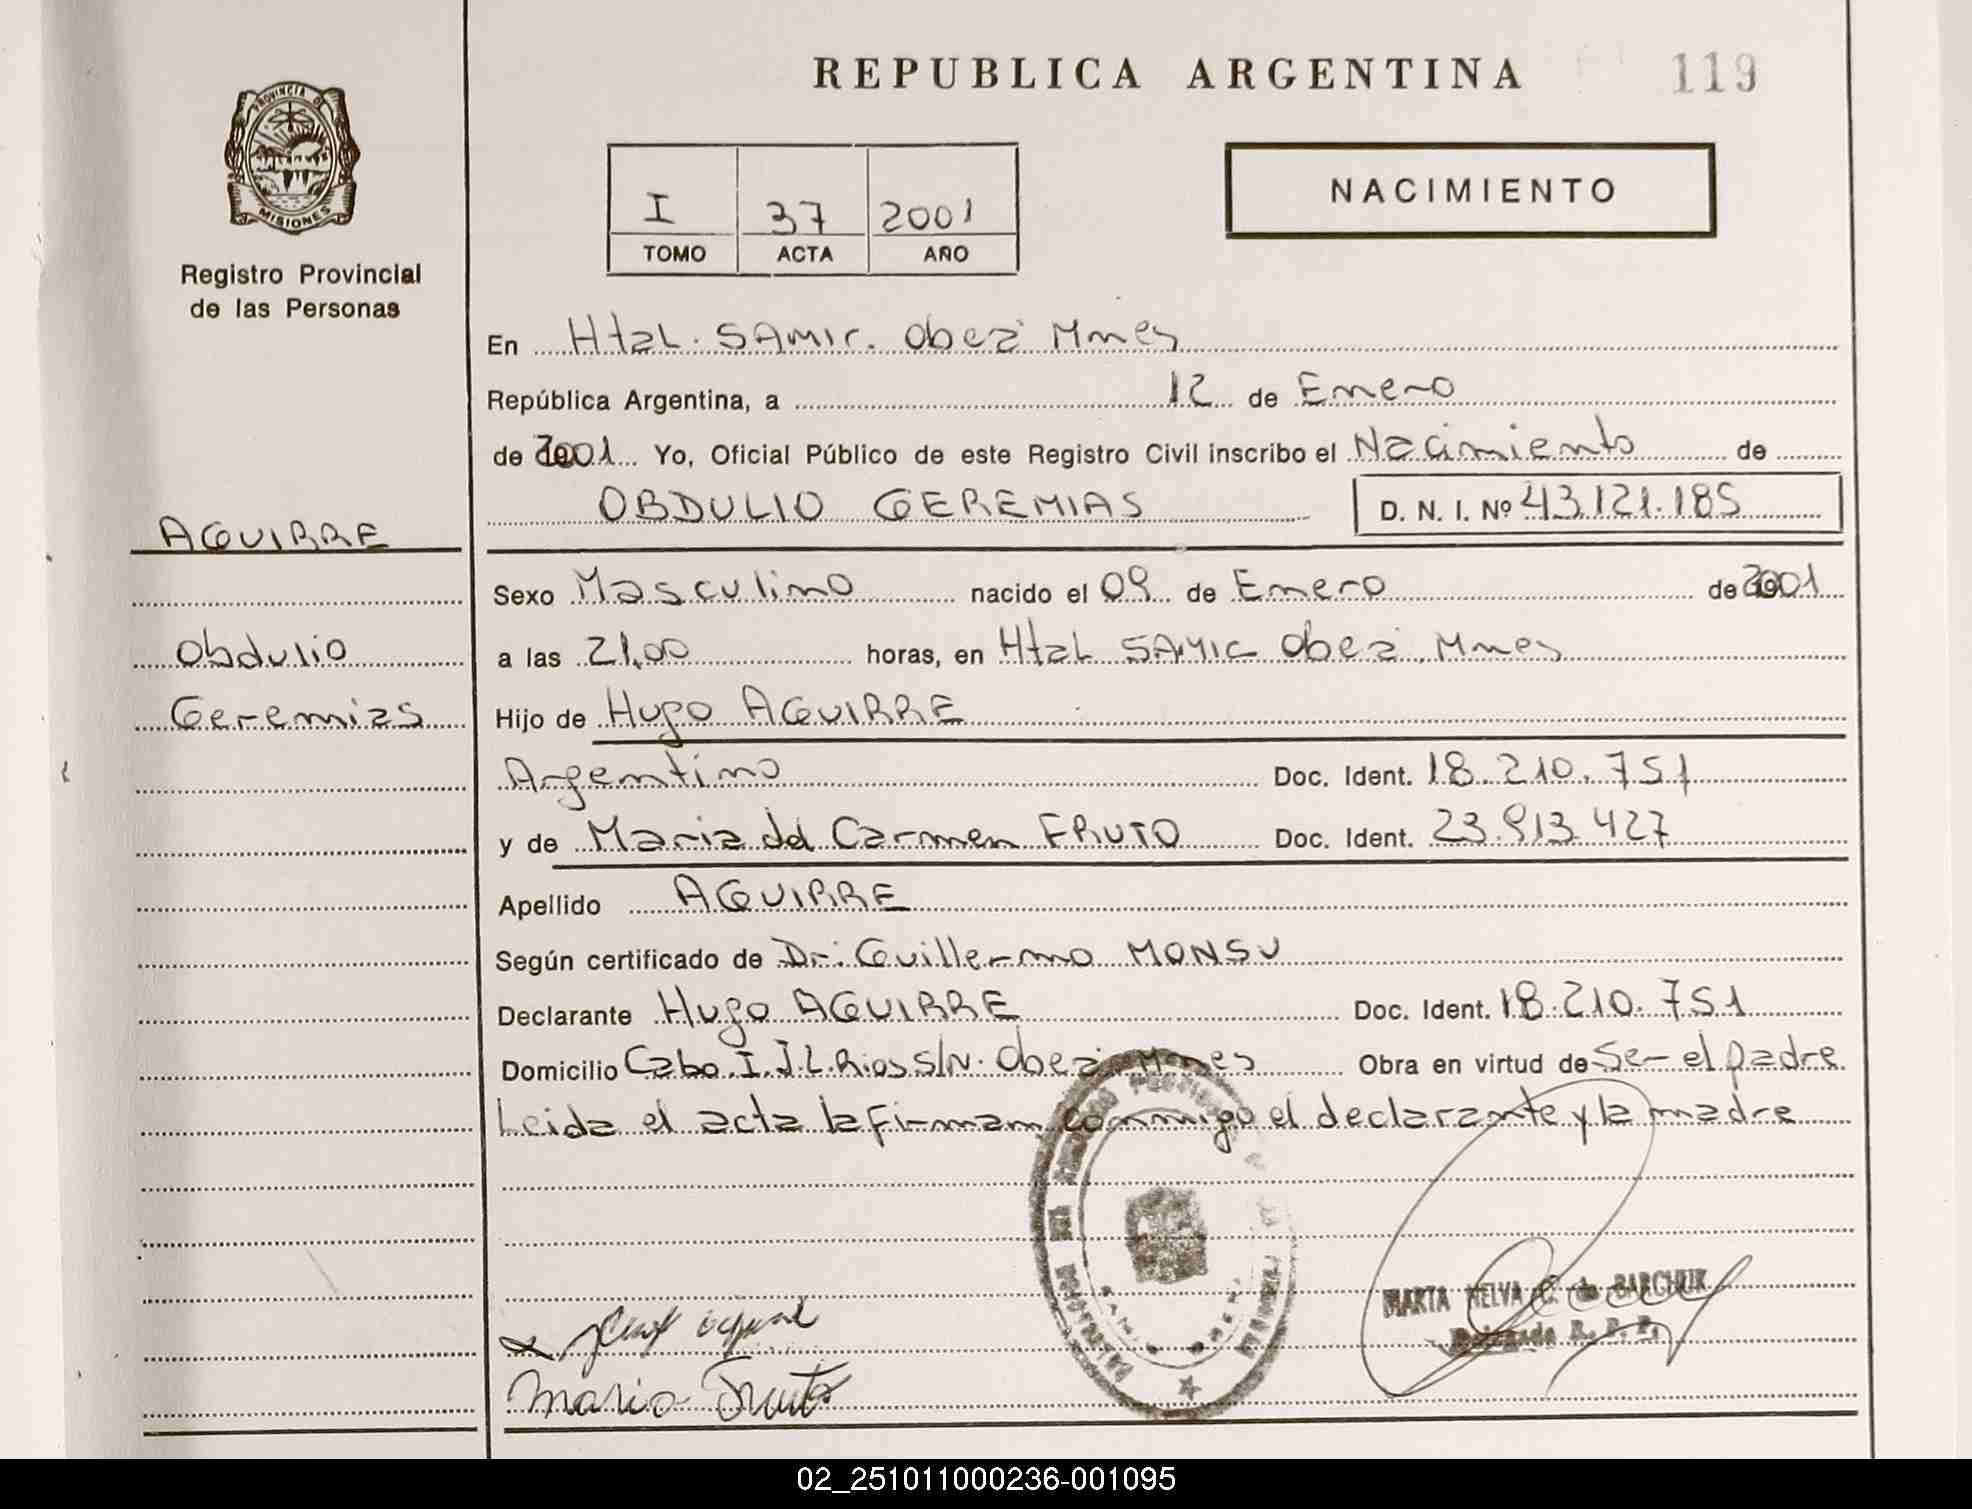 REPUBLICA ARGENTINA
119
PROVINCIA D
MISIONES
Registro Provincial
de las Personas
I 37 2001
TOMO ACTA AÑO
NACIMIENTO
En Htal. SAMIC. Oberá Mnes
República Argentina, a 12 de Enero
de 2001 Yo, Oficial Público de este Registro Civil inscribo el Nacimiento de
OBDULIO GEREMIAS D. N. I. Nº 43.121.185
AGUIRRE
Sexo Masculino nacido el 09 de Enero de 2001
Obdulio
a las 21,00 horas, en Htal SAMIC Oberá Mnes
Geremias
Hijo de Hugo AGUIRRE
Argentino Doc. Ident. 18.210.751
y de Maria del Carmen FRUTO Doc. Ident. 23.913.427
Apellido AGUIRRE
Según certificado de Dr: Guillermo MONSU
Declarante Hugo AGUIRRE Doc. Ident. 18.210.751
Domicilio Cabo I. J.L. Rios S/N. Oberá Mnes Obra en virtud de Ser el padre
Leida el acta la firman conmigo el declarante y la madre
MARTA NELVA C. de BARCHUK
Delegada R. P. P.
Maria Fruto
02_251011000236-001095